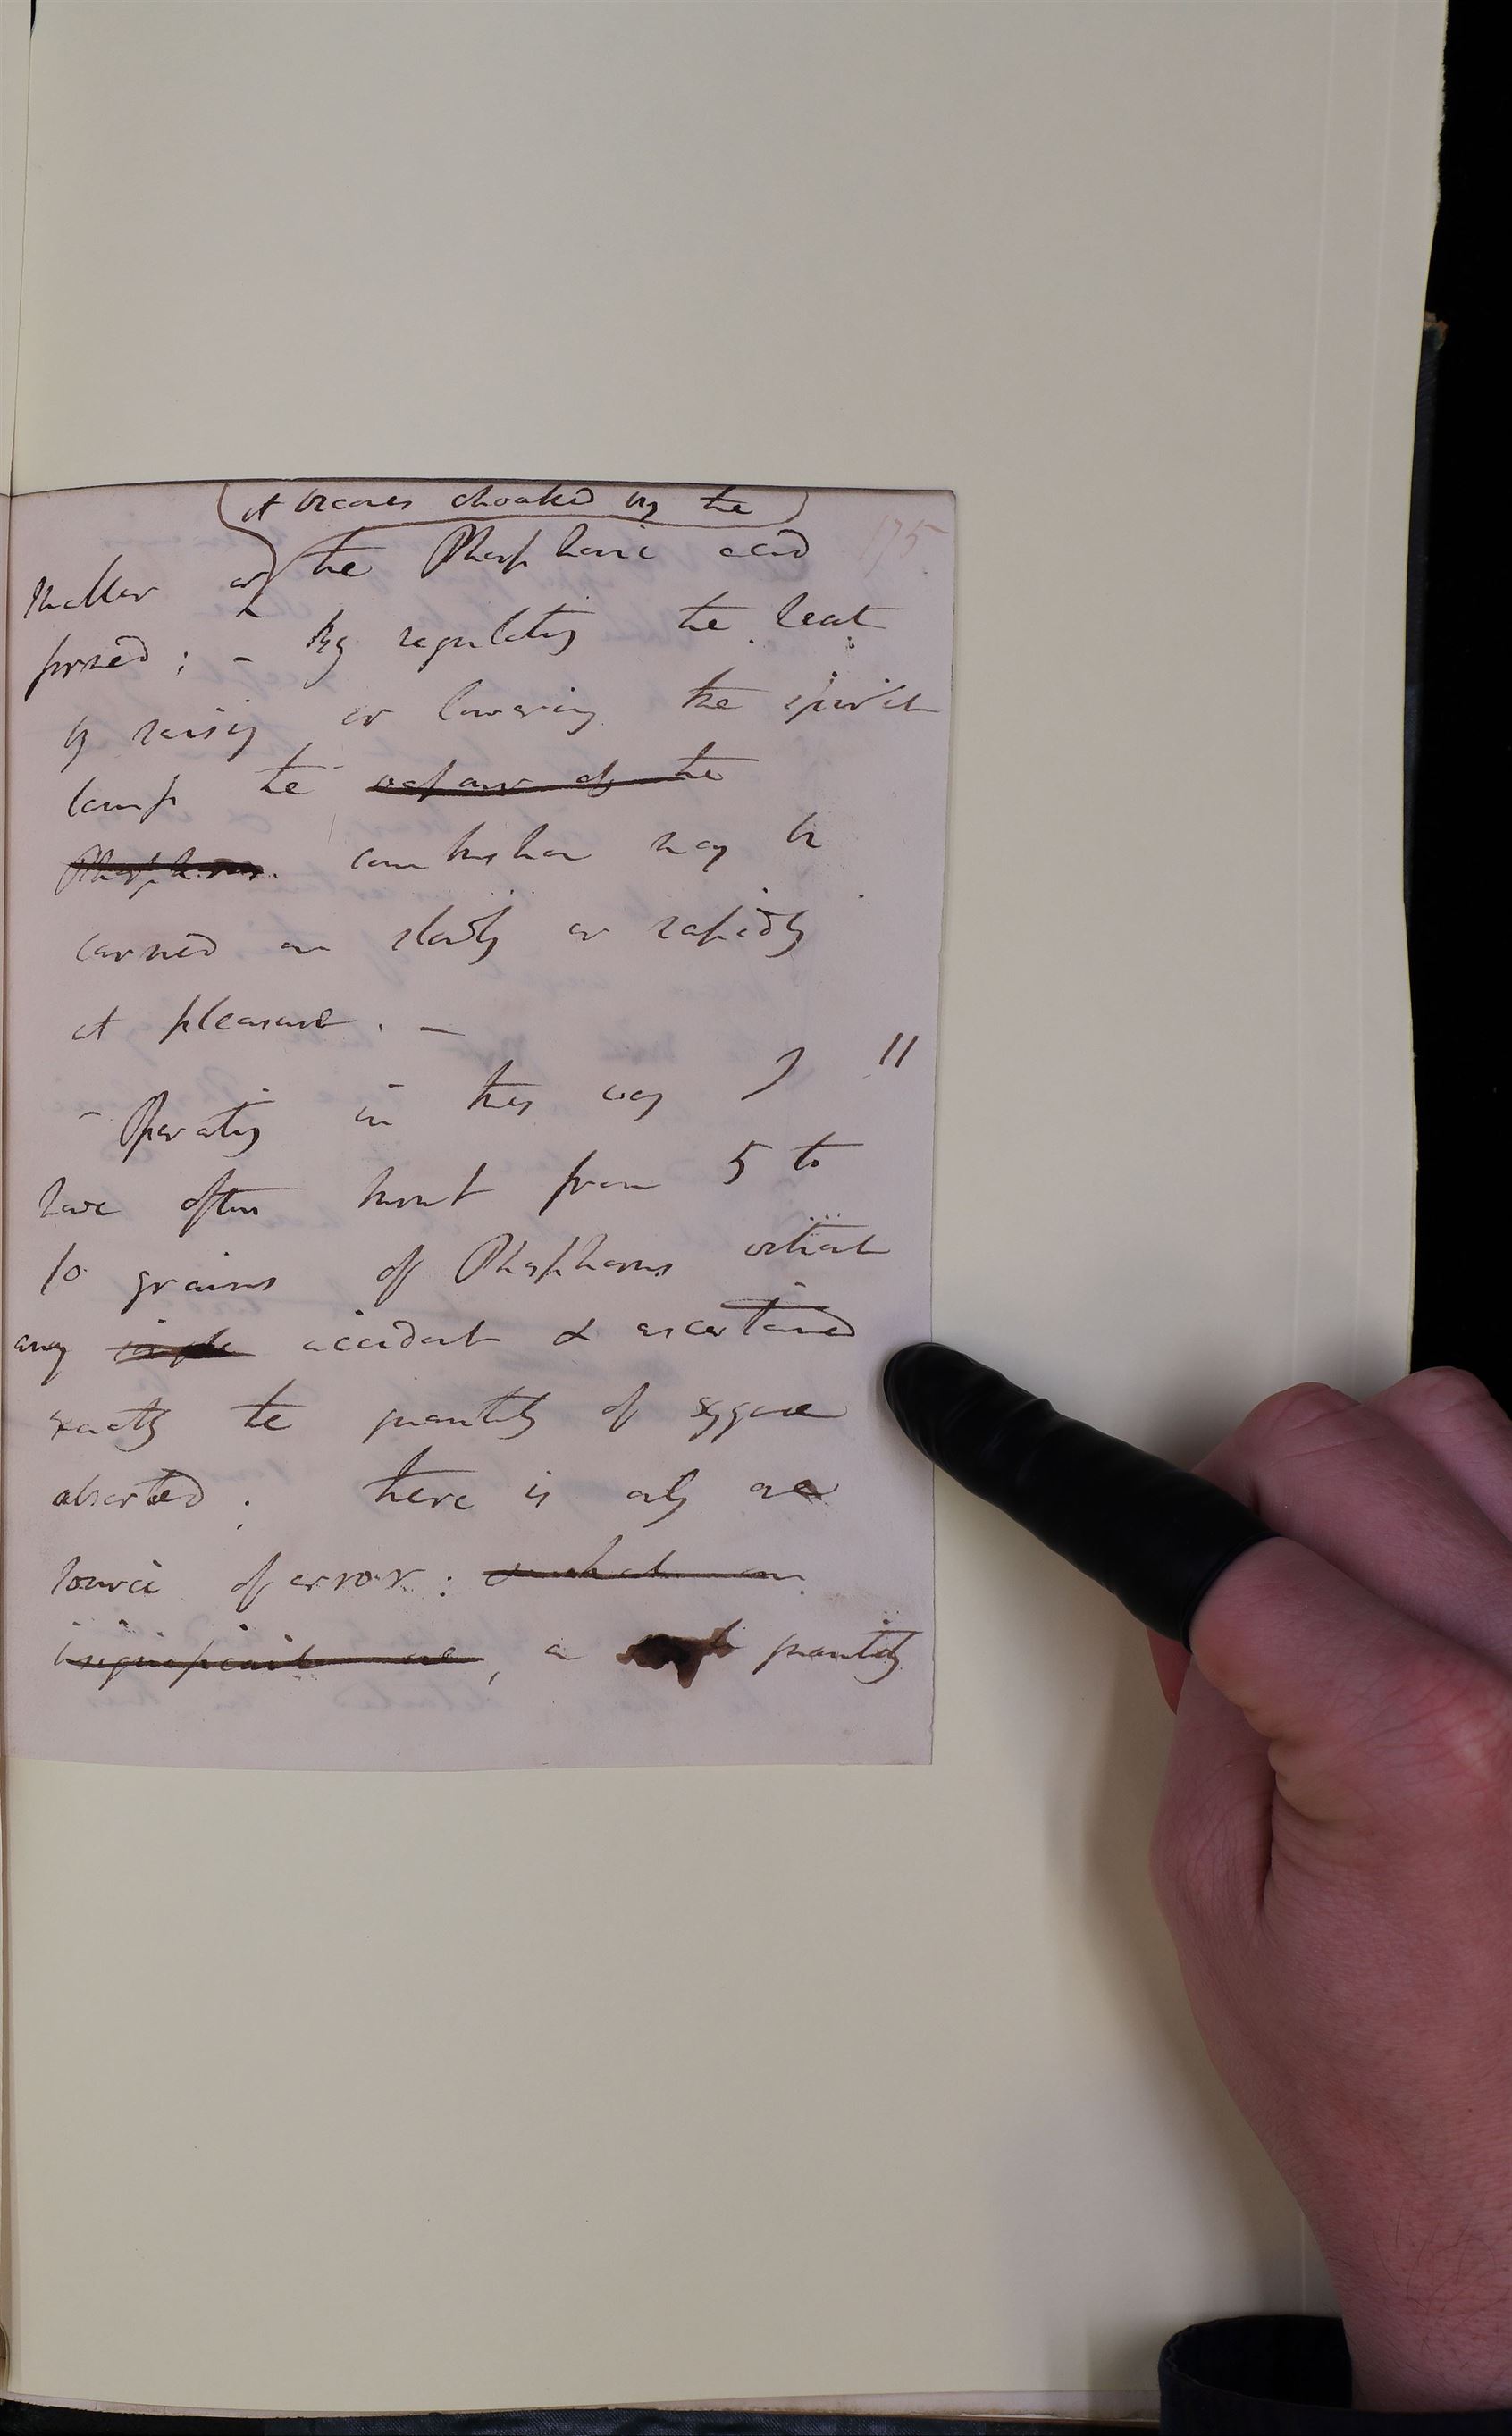 it becomes choaked by the
175
matter or the Phosphoric acid
formed; - By regulating the heat
by raising or lowering the spirit
lamp the vapour of the
Phosphorus. combustion may be
carried on slowly or rapidly
at pleasure. -
- Operating in this way I 11
have often burnt from 5 to
10 grains of Phosphorus without
any single accident & ascertained
exactly the quantity of oxygene
absorbed. there is only one
source of error: & that an
insignificant one, a quantity